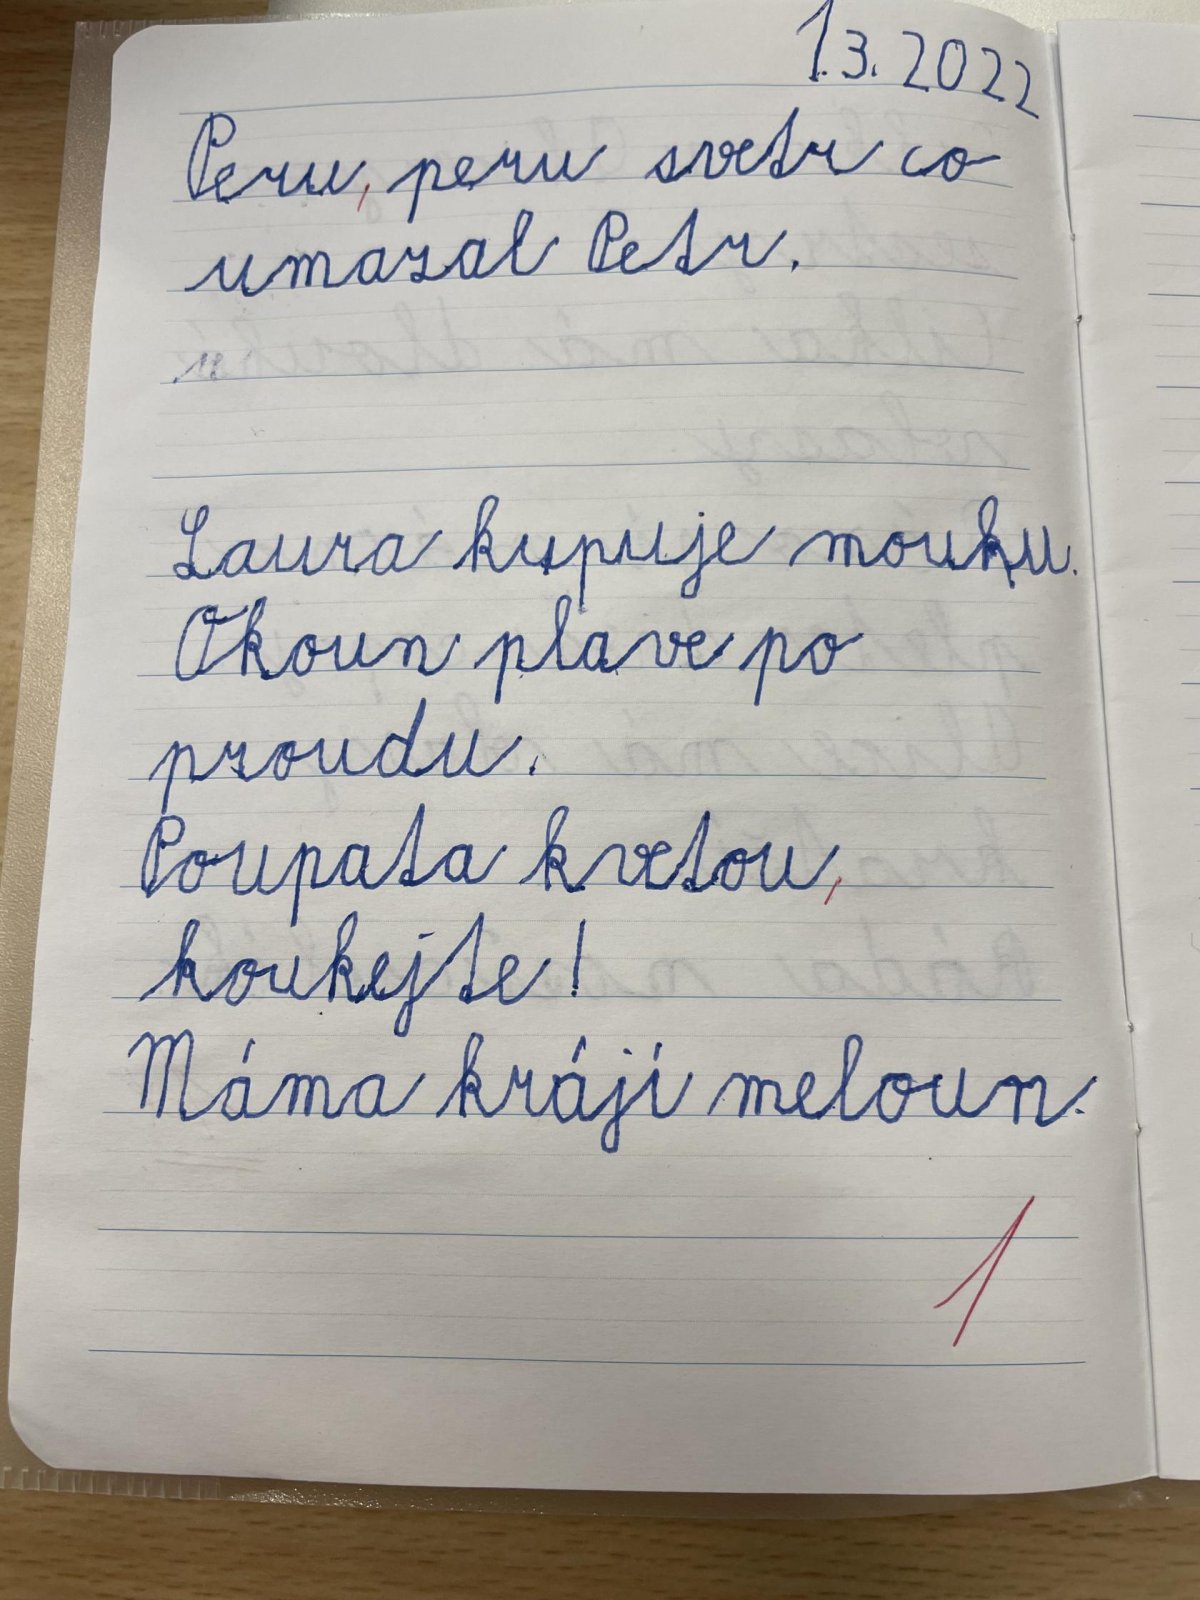 1.3.2022
Peru, peru svetr co
umazal Petr.
Laura kupuje mouku.
Okoun plave po
proudu.
Poupata kvetou,
koukejte!
Máma krájí meloun.
1